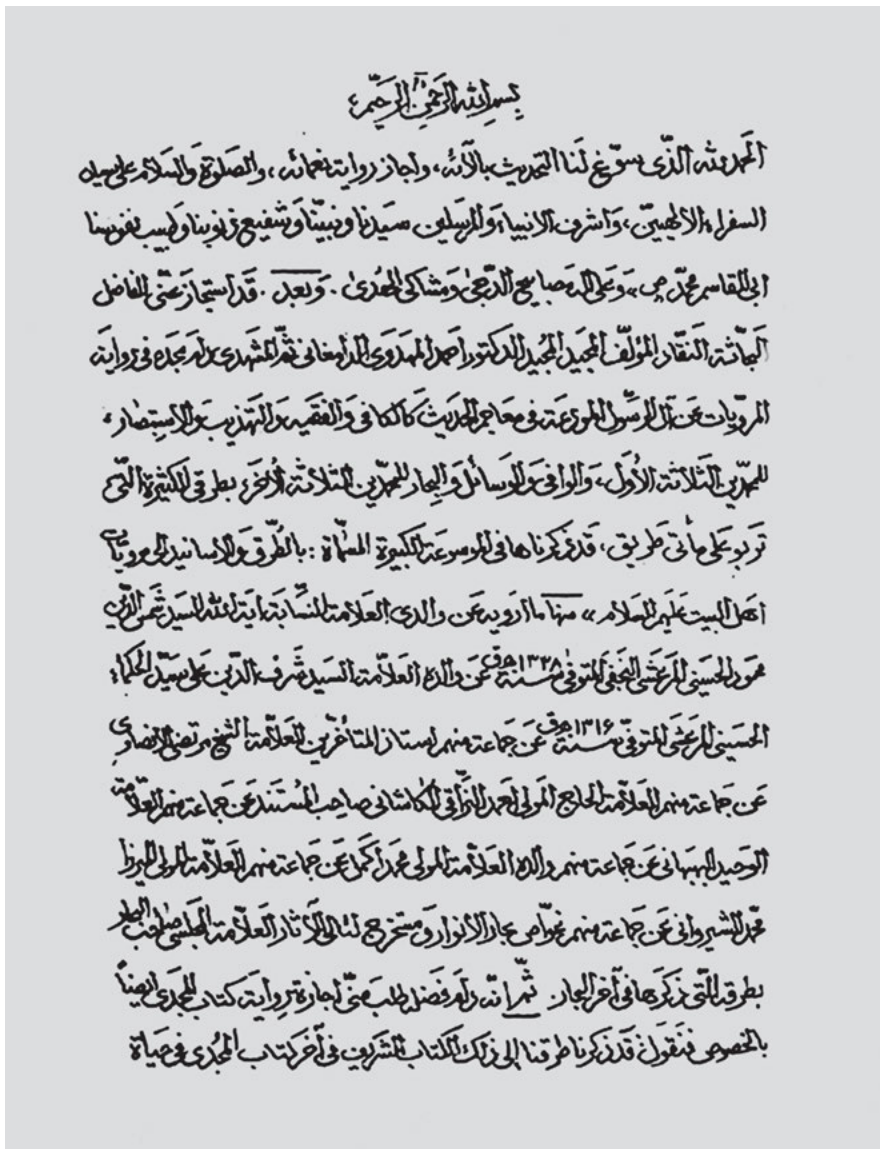 بسم الله الرحمن الرحيم
الحمد لله الذي سوّغ لنا التحديث بآلائه، واجاز رواية نعمائه، والصلوة والسلام على
السفراء الالهيين، واشرف الانبياء والمرسلين سيدنا ونبيّنا وشفيع ذنوبنا وطبيب نفوسنا
ابى القاسم محمّد ص، وعلى آله مصابيح الدجى ومشاكى الهُدى. وبعد. قد استجاز عنّى الفاضل
البحاثة النقاد المؤلّف المجيد المجيد الدكتور احمد المهدوى الدامغانى ثمّ المشهدى دام مجده فى رواية
المرويات عن آل الرسول المودعة فى معاجم الحديث كالكافى والفقيه والتهذيب والاستبصار
للمحمدين الثلاثة الأول، والوافى والوسائل والبحار للمحمدين الثلاثة الأخر، بطرقى الكثيرة التى
تربو على مأتى طريق، قد ذكرناها فى الموسوعة الكبيرة المسمّاة: بالطُرق والاسانيد الى مرويات
اهل البيت عليهم السلام» منها ما أرويه عن والدى العلامة النسّابة آية الله السيد شمس الدين
محمود الحسينى المرعشى النجفى المتوفى سنة ١٣٣٨ ه‍ق عن والده العلّامة السيد شرف الدين على سيّد الحكماء
الحسينى المرعشى المتوفّى سنة ١٣١٦ ه‍ق عن جماعة منهم استاز المتأخرين العلّامة الشيخ مرتضى الانصارى
عن جماعة منهم العلّامة الحاج المولى احمد النراقى الكاشانى صاحب المُستند عن جماعة منهم العلّامة
الوحيد البهبهانى عن جماعة منهم والده العلّامة المولى محمد اكمل عن جماعة منهم العلّامة المولى الميرزا
محمّد الشيروانى عن جماعة منهم غوّاص بحار الأنوار و مستخرج لئالى الآثار العلّامة المجلسى صاحب البحار
بطرقه التى ذكرها فى آخر البحار. ثمّ انّه دام فضله طلب منّى اجازة رواية كتاب المجدى ايضاً
بالخصوص فنقول قد ذكرنا طرقنا إلى ذلك الكتاب الشريف فى آخر كتاب المجُدى فى حياة